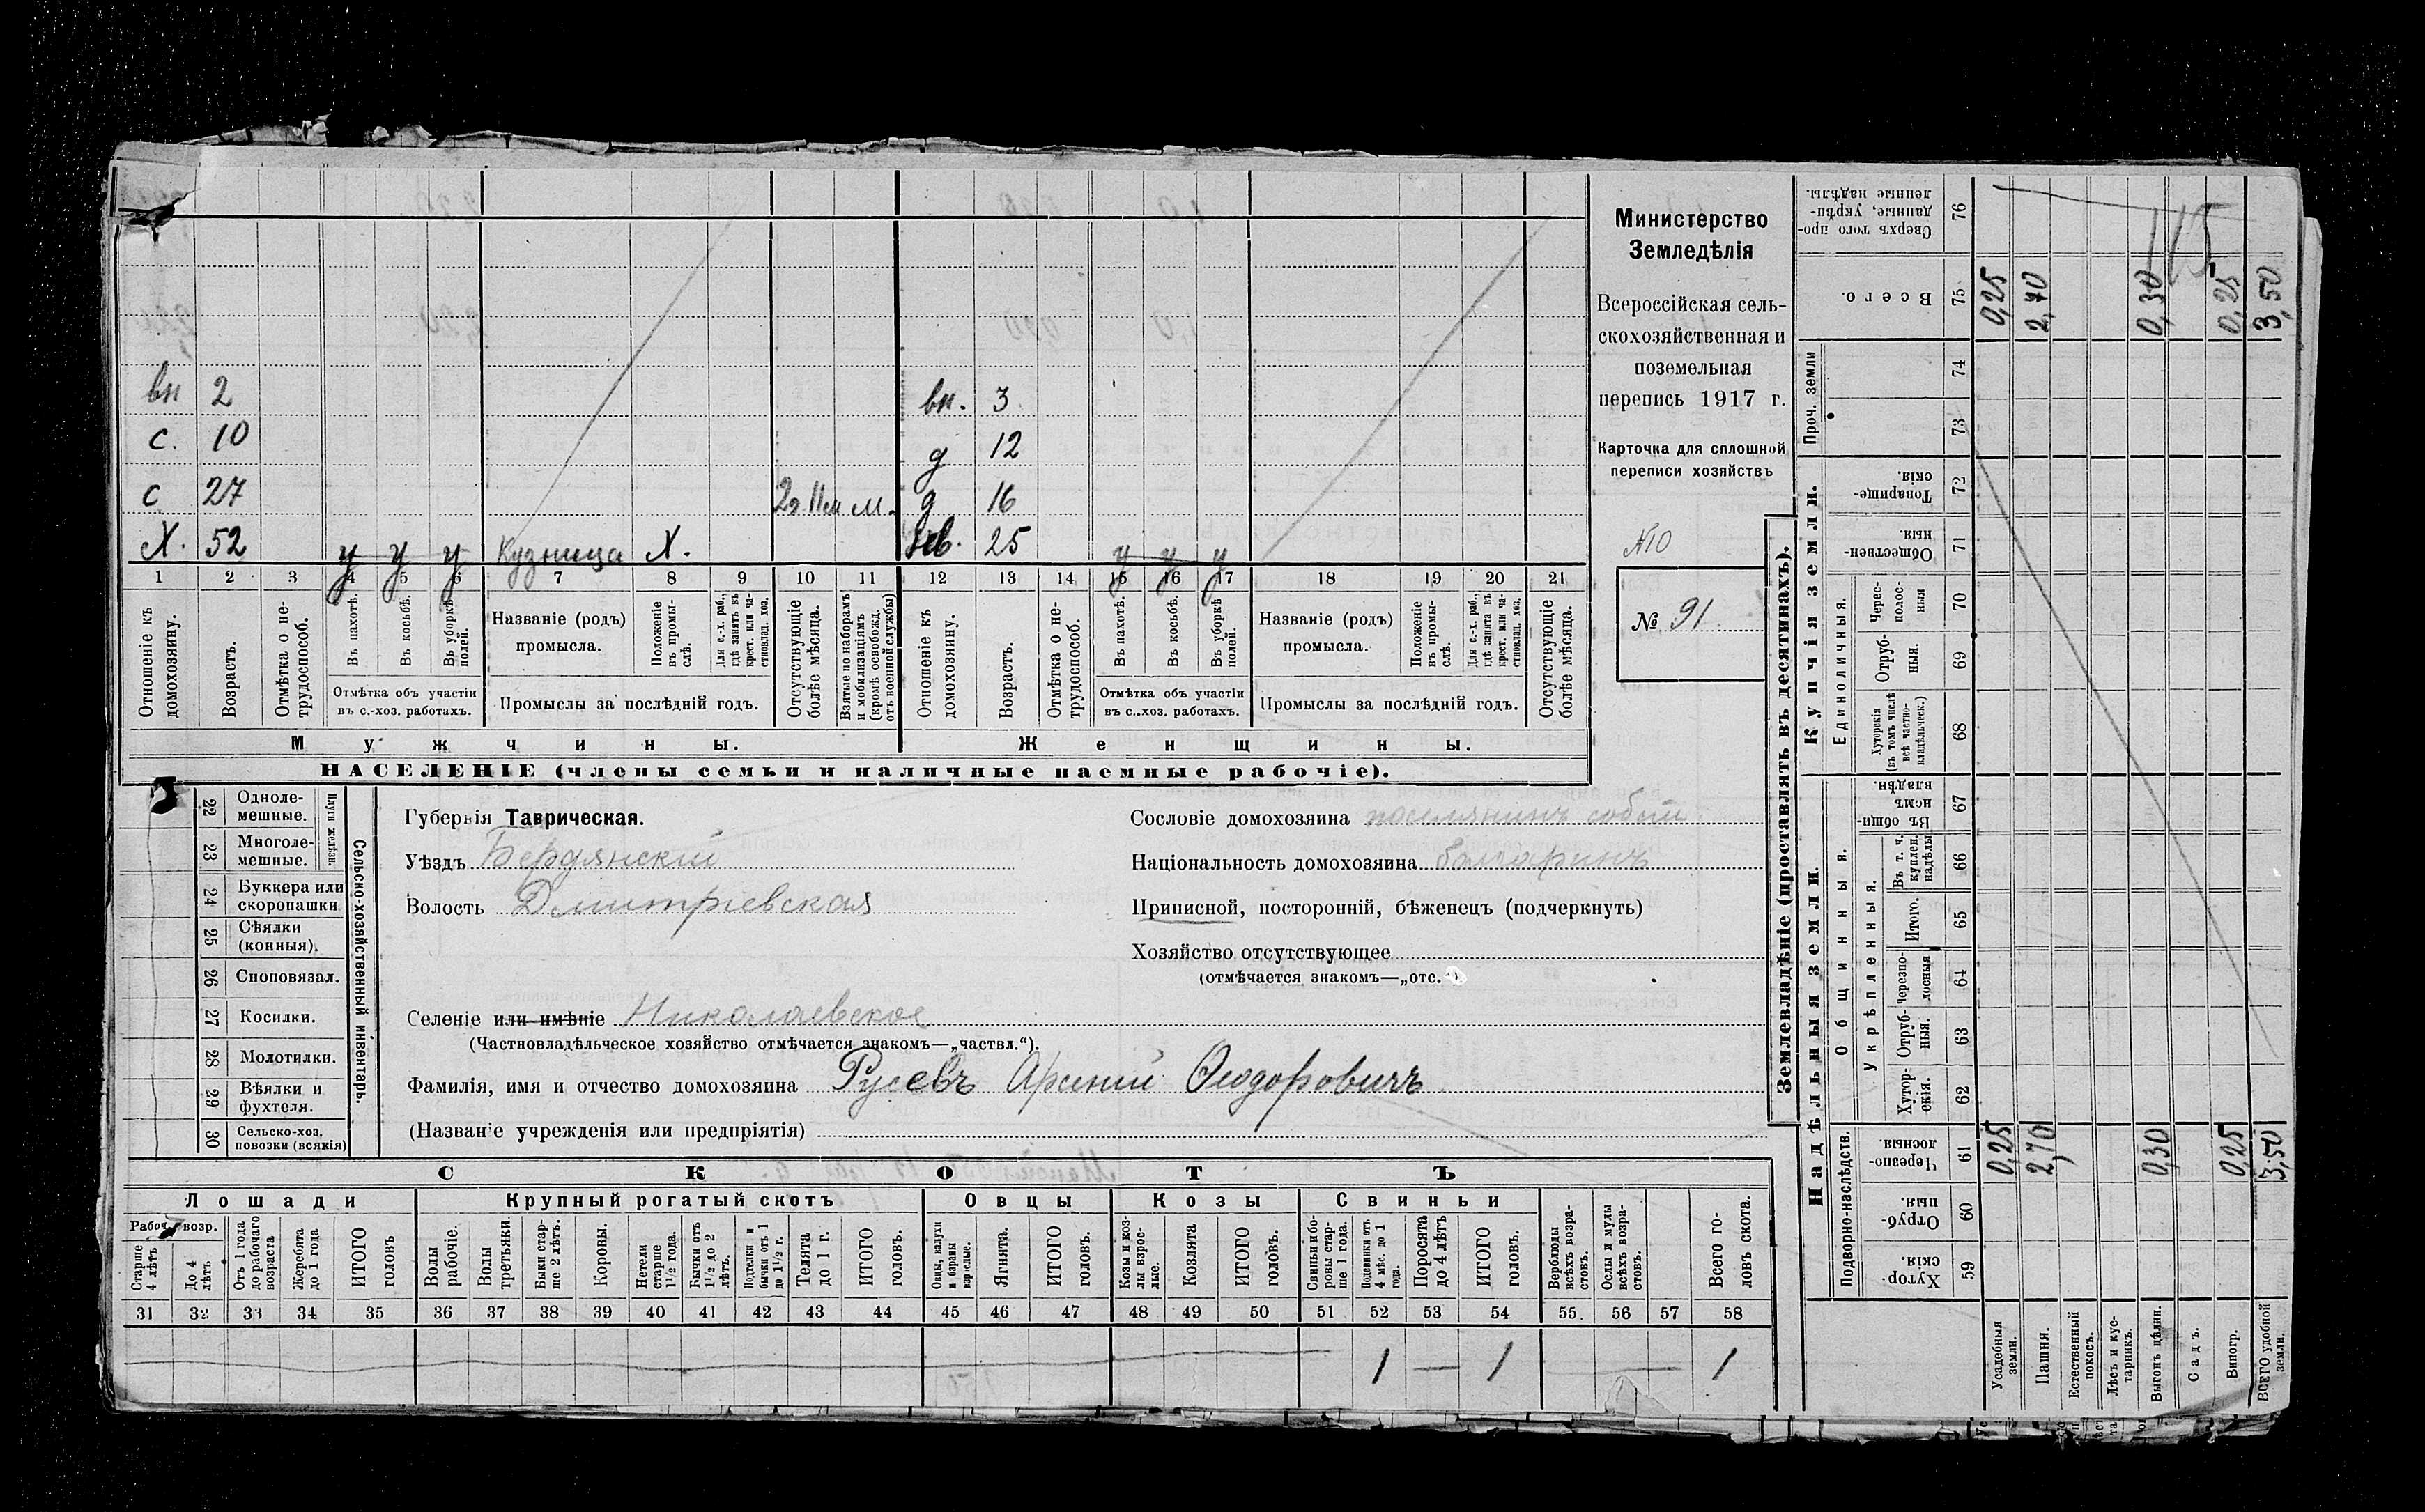 вн 2 вн. 3
с. 10 д 12
с 27 2г. 11м м. д 16
Х. 52 у у у Кузница Х. нев. 25 у у у
1 2 3 4 5 6 7 8 9 10 11 12 13 14 15 16 17 18 19 20 21
Отношеніе къ домохозяину.
Возрастъ.
Отмѣтка о не-
трудоспособ.
Въ пахотѣ.
Въ косьбѣ.
Въ уборкѣ
полей.
Отмѣтка объ участіи
въ с.-хоз. работахъ.
Названіе (родъ)
промысла.
Положеніе
въ промы-
слѣ.
Для с.-х. раб.,
гдѣ занятъ въ
крест. или ча-
стновлад. хоз.
Промыслы за послѣдній годъ.
Отсутствующіе
болѣе мѣсяца.
Взятые по наборамъ
и мобилизаціямъ
(кромѣ освобожд.
отъ военной службы)
Отношеніе къ
домохозяину.
Возрастъ.
Отмѣтка о не-
трудоспособ.
Въ пахотѣ.
Въ косьбѣ.
Въ уборкѣ
полей.
Отмѣтка объ участіи
въ с.-хоз. работахъ.
Названіе (родъ)
промысла.
Положеніе
въ промы-
слѣ.
Для с.-х. раб.,
гдѣ занята въ
крест. или ча-
стновлад. хоз.
Промыслы за послѣдній годъ.
Отсутствующіе
болѣе мѣсяца.
Мужчины. Женщины.
НАСЕЛЕНІЕ (члены семьи и наличные наемные рабочіе).
Министерство
Земледѣлія
Всероссійская сель-
скохозяйственная и
поземельная
перепись 1917 г.
Карточка для сплошной
переписи хозяйствъ
№10
№ 91
22 Одноле-
мешные.
23 Многоле-
мешные.
Плуги желѣзн.
24 Буккера или
скоропашки
25 Сѣялки
(конныя).
26 Сноповязал.
27 Косилки.
28 Молотилки.
29 Вѣялки и
фухтеля.
30 Сельско-хоз.
повозки (всякія)
Сельско-хозяйственный инвентарь.
Губернія Таврическая.
Уѣздъ Бердянскій
Волость Дмитріевская
Селеніе или имѣніе Николаевское
(Частновладѣльческое хозяйство отмѣчается знакомъ—„частвл.“).
Фамилія, имя и отчество домохозяина Русевъ Арсеній Ѳеодоровичъ
(Названіе учрежденія или предпріятія)
Сословіе домохозяина поселянинъ собст
Національность домохозяина болгаринъ
Приписной, посторонній, бѣженецъ (подчеркнуть)
Хозяйство отсутствующее
(отмѣчается знакомъ—„отс.“)
СКОТЪ
Лошади Крупный рогатый скотъ Овцы Козы Свиньи
Рабоч. возр.
Старше
4 лѣтъ
До 4
лѣтъ
Отъ 1 года
до рабочаго
возраста
Жеребята
до 1 года
ИТОГО
головъ
Волы
рабочіе.
Волы
третьяки.
Быки стар-
ше 2 лѣтъ.
Коровы.
Нетели
старше
1½ года.
Бычки отъ
1½ до 2
лѣтъ.
Подтелки и
бычки отъ 1
до 1½ г.
Телята
до 1 г.
ИТОГО
головъ.
Овцы, валухи
и бараны
взрослые.
Ягнята.
ИТОГО
головъ.
Козы и коз-
лы взрос-
лые.
Козлята
ИТОГО
головъ.
Свиньи и бо-
ровы стар-
ше 1 года.
Подсвинки отъ
4 мѣс. до 1
года.
Поросята
до 4 лѣтъ
ИТОГО
головъ.
Верблюды
всѣхъ возра-
стовъ.
Ослы и мулы
всѣхъ возра-
стовъ.
Всего го-
ловъ скота.
31 32 33 34 35 36 37 38 39 40 41 42 43 44 45 46 47 48 49 50 51 52 53 54 55. 56 57 58
1 — 1 — 1
Землевладѣніе (проставлять въ десятинахъ).
Надѣльныя земли. Купчія земли. Проч. земли
Подворно-наслѣдств. Общинныя. Укрѣпленныя. Единоличныя.
Сверхъ того про-
данные, укрѣп-
ленные надѣлы. 76
115
Всего. 75 0,25 2,70 0,30 0,25 3,50
74
73
Товарище-
скія. 72
Обществен-
ныя. 71
Черес-
полос-
ныя 70
Отруб-
ныя. 69
Хуторскія
(въ томъ числѣ
всѣ частно-
владѣльческ.) 68
Въ общин-
номъ
владѣн. 67
Въ т. ч.
куплен.
надѣлы 66
Итого. 65
Черезпо-
лосныя 64
Отруб-
ныя. 63
Хутор-
скія. 62
Черезпо-
лосныя. 61 0,25 2,70 0,30 0,25 3,50
Отруб-
ныя. 60
Хутор-
скія. 59
Усадебныя
земли.
Пашня.
Естественный
покосъ.
Лѣсъ и кус-
тарникъ.
Выгонъ цѣлин.
Садъ.
Виногр.
ВСЕГО удобной
земли.